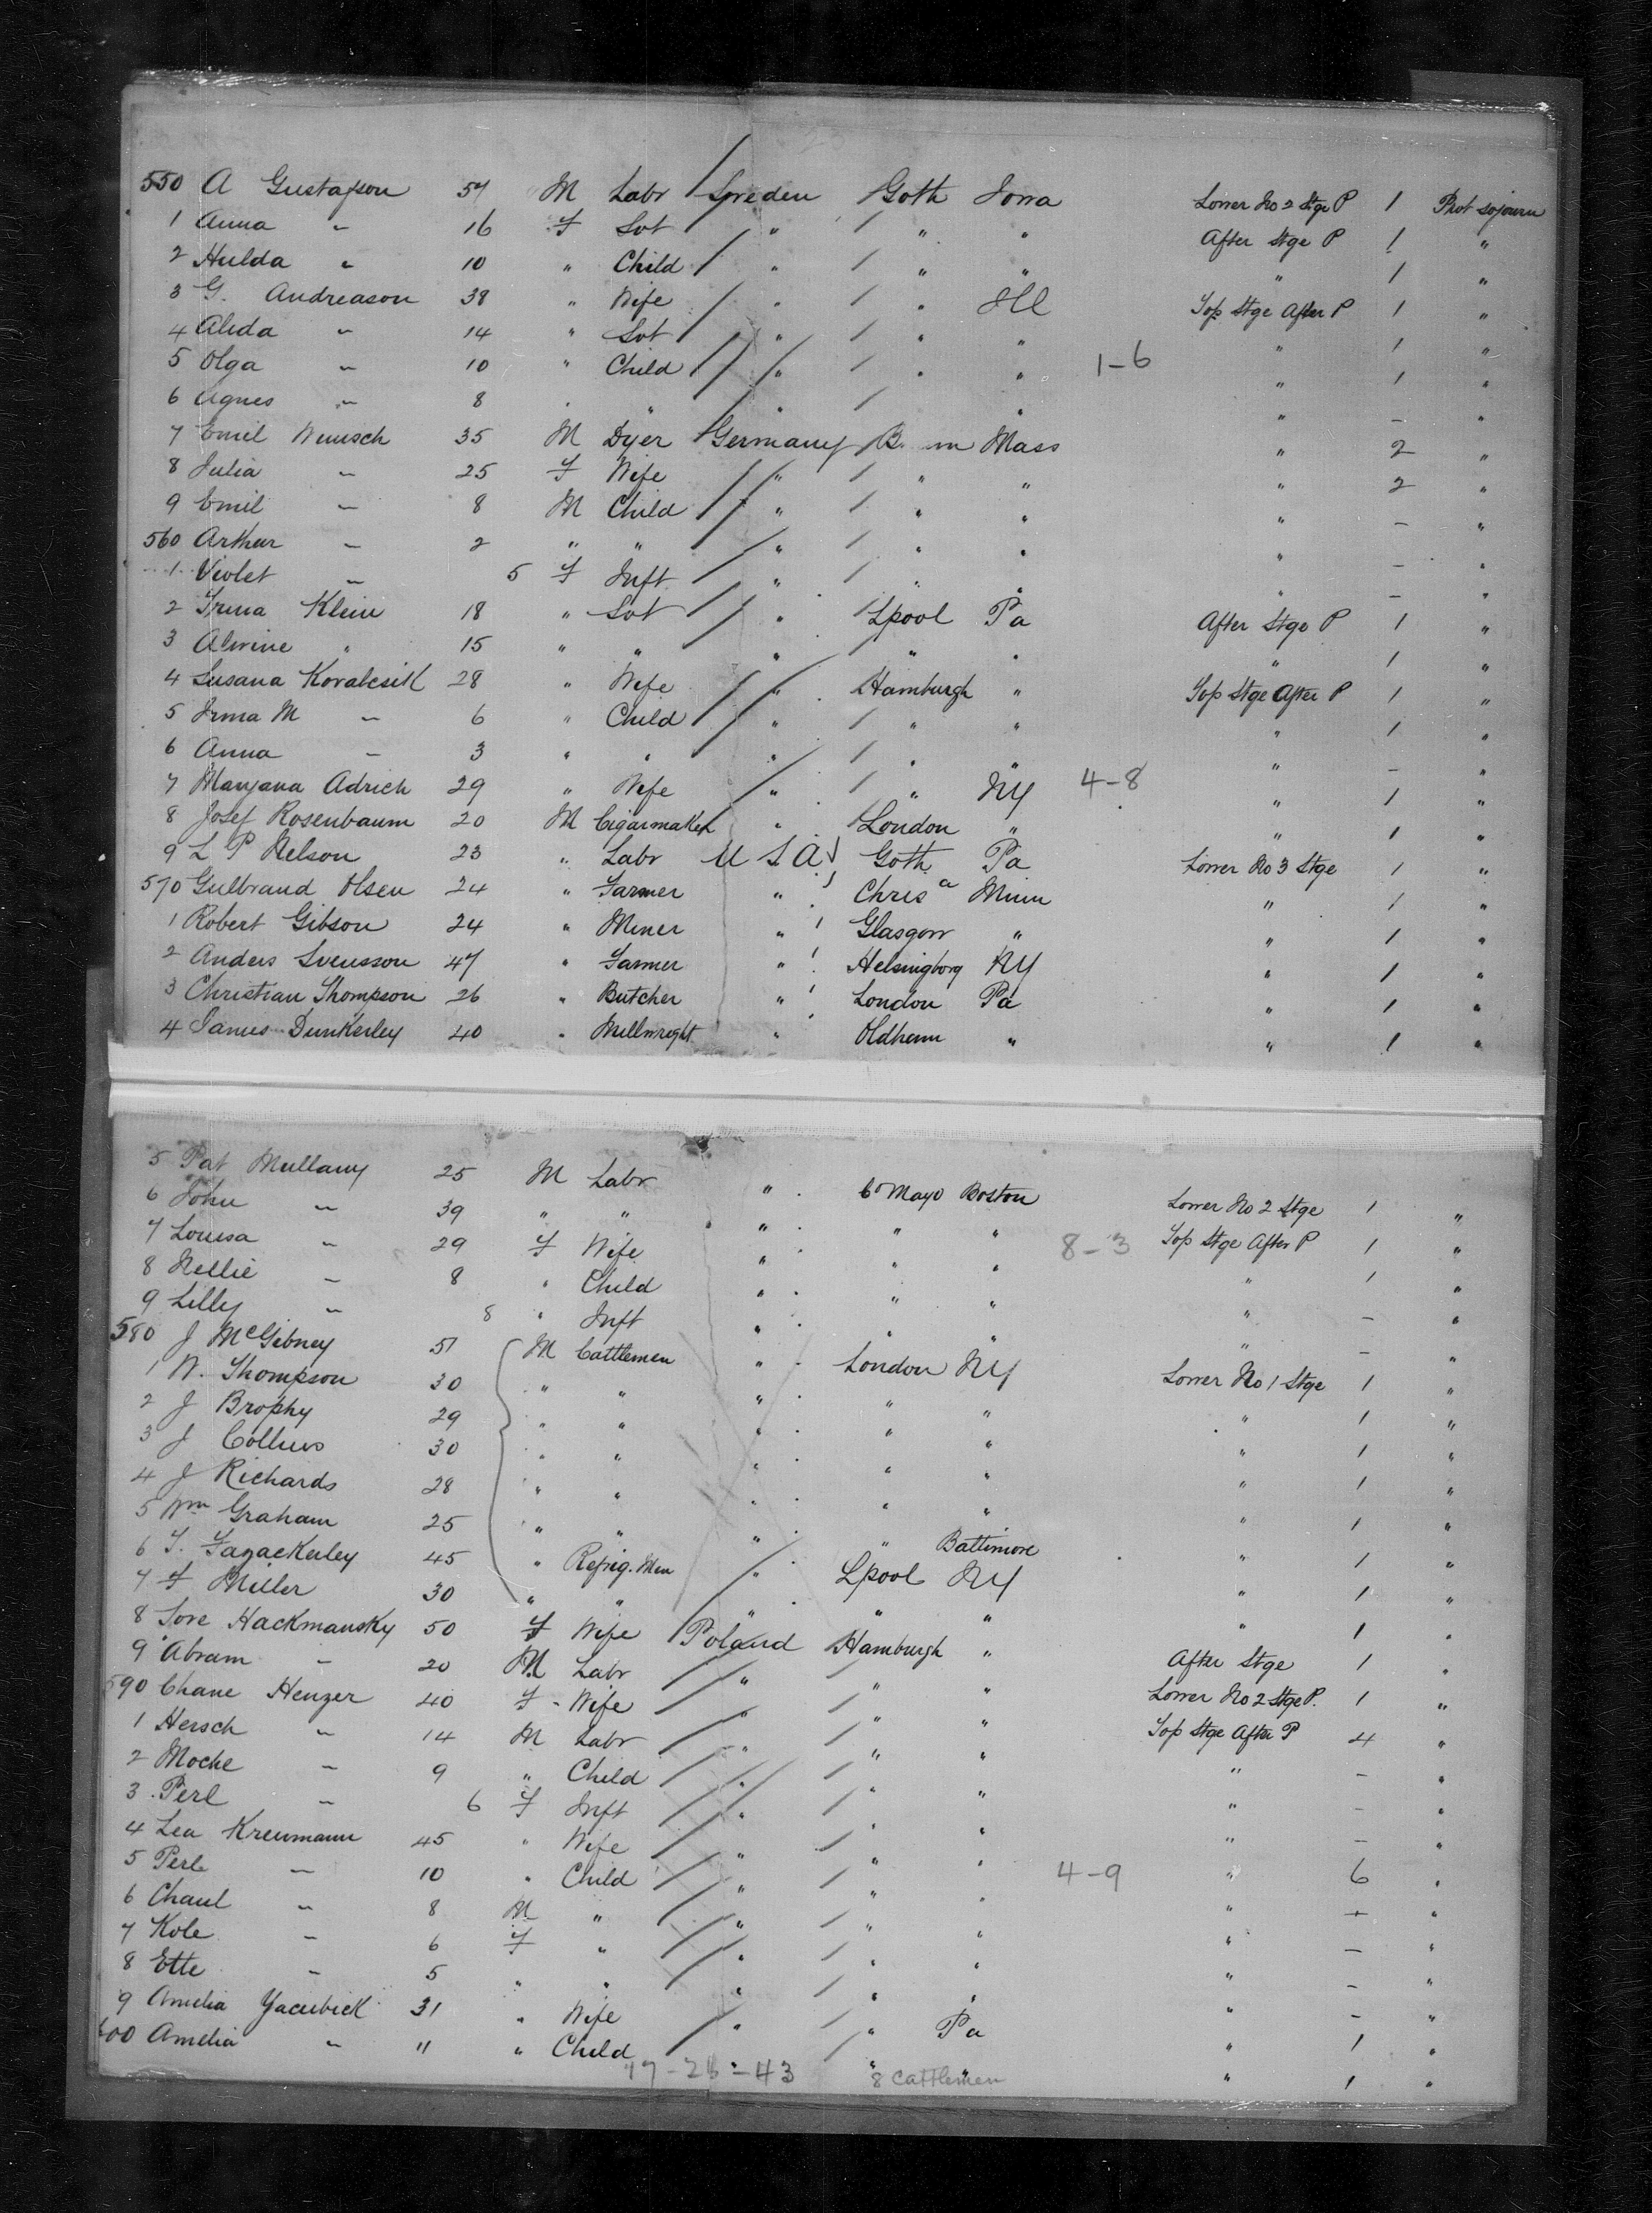 550 A Gustafson 57 M Labr Sweden Goth Iowa Lower No 2 Stge P 1 Prot sojourn
1 Anna " 16 F Svt " " " After Stge P 1 "
2 Hulda " 10 " Child " " " " 1 "
3 G. Andreason 38 " Wife " " Ill Top Stge After P 1 "
4 Alida " 14 " Svt " " " " 1 "
5 Olga " 10 " Child " " " 1-6 " 1 "
6 Agnes " 8 " " " " " - "
7 Emil Wunsch 35 M Dyer Germany B. m Mass " 2 "
8 Julia " 25 F Wife " " " " 2 "
9 Emil " 8 M Child " " " " - "
560 Arthur " 2 " " " " " " - "
1 Violet " 5 F Inft " " " " - "
2 Irma Klein 18 " Svt " Lpool Pa After Stge P 1 "
3 Alwine " 15 " " " " " " 1 "
4 Susana Kovalcsik 28 " Wife " Hamburgh " Top Stge After P 1 "
5 Irma M " 6 " Child " " " " 1 "
6 Anna " 3 " " " " " " - "
7 Maryana Adrich 29 " Wife " " NY 4-8 " 1 "
8 Josef Rosenbaum 20 M Cigarmaker " London " " 1 "
9 L P Nelson 23 " Labr U S A Goth Pa Lower No 3 Stge 1 "
570 Gulbrand Olsen 24 " Farmer " Chris a Minn " 1 "
1 Robert Gibson 24 " Miner " Glasgow " " 1 "
2 Anders Svensson 47 " Farmer " Helsingborg NY " 1 "
3 Christian Thompson 26 " Butcher " London Pa " 1 "
4 James Dunkerley 40 " Millwright " Oldham " " 1 "
5 Pat Mullany 25 M Labr " Co Mayo Boston Lower No 2 Stge 1 "
6 John " 39 " " " " " Top Stge After P 1 "
7 Louisa " 29 F Wife " " " 8-3 " 1 "
8 Nellie " 8 " Child " " " " - "
9 Lilly " 8 " Inft " " " " - "
580 J McGibney 51 M Cattlemen " London NY Lower No 1 Stge 1 "
1 W. Thompson 30 " " " " " " 1 "
2 J Brophy 29 " " " " " " 1 "
3 J Collins 30 " " " " " " 1 "
4 J Richards 28 " " " " " " 1 "
5 Wm Graham 25 " " " " Baltimore " 1 "
6 T. Fazackerley 45 " Refrig. Men " Lpool NY " 1 "
7 F Miller 30 " " " " " " 1 "
8 Sore Hackmansky 50 F Wife Poland Hamburgh " After Stge 1 "
9 Abram " 20 M Labr " " " Lower No 2 Stge P. 1 "
590 Chane Henzer 40 F Wife " " " Top Stge After P 4 "
1 Hersch " 14 M Labr " " " " - "
2 Moche " 9 " Child " " " " - "
3 Perl " 6 F Inft " " " " - "
4 Lea Kreumann 45 " Wife " " " 4-9 " 6 "
5 Perl " 10 " Child " " " " - "
6 Chaul " 8 M " " " " " - "
7 Kole " 6 F " " " " " - "
8 Ette " 5 " " " " " " - "
9 Amelia Yacubick 31 " Wife " " Pa " 1 "
600 Amelia " 11 " Child " " " " 1 "
8 Cattlemen